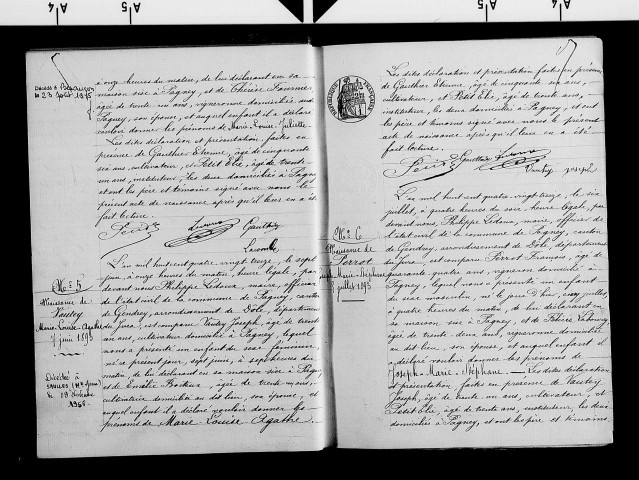 à onze heures du matin, de lui déclarant en sa
maison sise à Pagney, et de Thérèse Fournier,
âgée de trente un ans, vigneronne domiciliée audit
Pagney, son épouse, et auquel enfant il a déclaré
vouloir donner les prénoms de Marie-Louise-Juliette.
Les dites déclaration et présentation, faites en
présence de Gauthier Etienne, âgé de cinquante
six ans, cultivateur, et Petit Elie, âgé de trente
un ans, instituteur, les deux domiciliés à Pagney
et ont les père et témoins signé avec nous le
présent acte de naissance après qu'il leur en a été
fait lecture.
Petit Gauthier
N° 5
Naissance de
Vautey
Marie-Louise-Agathe
7 juin 1893
Décédée à
le 19 Octobre
1968
L'an mil huit cent quatre vingt treize, le sept
juin, à onze heures du matin, heure légale, par
devant nous Philippe Ledoux, maire, officier
de l'état civil de la commune de Pagney, canton
de Gendrey, arrondissement de Dôle, département
du Jura, est comparu Vautey Joseph, âgé de trente
un ans, cultivateur domicilié à Pagney, lequel
nous a présenté un enfant de sexe féminin,
né ce présent jour, sept juin, à sept heures du
matin, de lui déclarant en sa maison sise à Pagney
et de âgée de trente un ans,
cultivatrice domiciliée au dit lieu, son épouse, et
auquel enfant il a déclaré vouloir donner les
prénoms de Marie-Louise Agathe.
RÉPUBLIQUE FRANÇAISE
Les dites déclaration et présentation faites en présence
de Gauthier Etienne, âgé de cinquante six ans,
cultivateur, et Petit Elie, âgé de trente ans,
instituteur, les deux domiciliés à Pagney, et ont
les père et témoins signé avec nous le présent
acte de naissance après qu'il leur en a été
fait lecture.
Petit Gauthier
Vautey Joseph
N° 6
Naissance de
Perrot
Joseph-Marie-Stéphane
juillet 1893
L'an mil huit cent quatre vingt treize, le six
juillet, à quatre heures du soir, heure légale, par
devant nous, Philippe Ledoux, maire, officier de
l'état civil de la commune de Pagney, canton
de Gendrey, arrondissement de Dôle, département
du Jura, est comparu Perrot François, âgé de
quarante quatre ans, vigneron domicilié à
Pagney, lequel nous a présenté un enfant
de sexe masculin, né le jour d'hier, cinq juillet,
à quatre heures du matin, de lui déclarant en
sa maison sise à Pagney, et de
âgée de trente-deux ans, vigneronne domiciliée
au dit lieu, son épouse, et auquel enfant il
a déclaré vouloir donner les prénoms de
Joseph-Marie-Stéphane. Les dites déclaration
et présentation, faites en présence de Vautey
Joseph, âgé de trente un ans, cultivateur, et
Petit Elie, âgé de trente ans, instituteur, les deux
domiciliés à Pagney, et ont les père et témoins